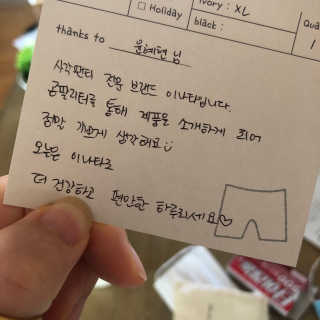 □ Holiday
ivory : XL
black :
Qua
1
thanks to 윤예현 님
사각팬티 전용 브랜드 이나타입니다.
공팔리터를 통해 제품을 소개하게 되어
정말 기쁘게 생각해요
오늘은 이나타로
더 건강하고 편안한 하루되세요♡